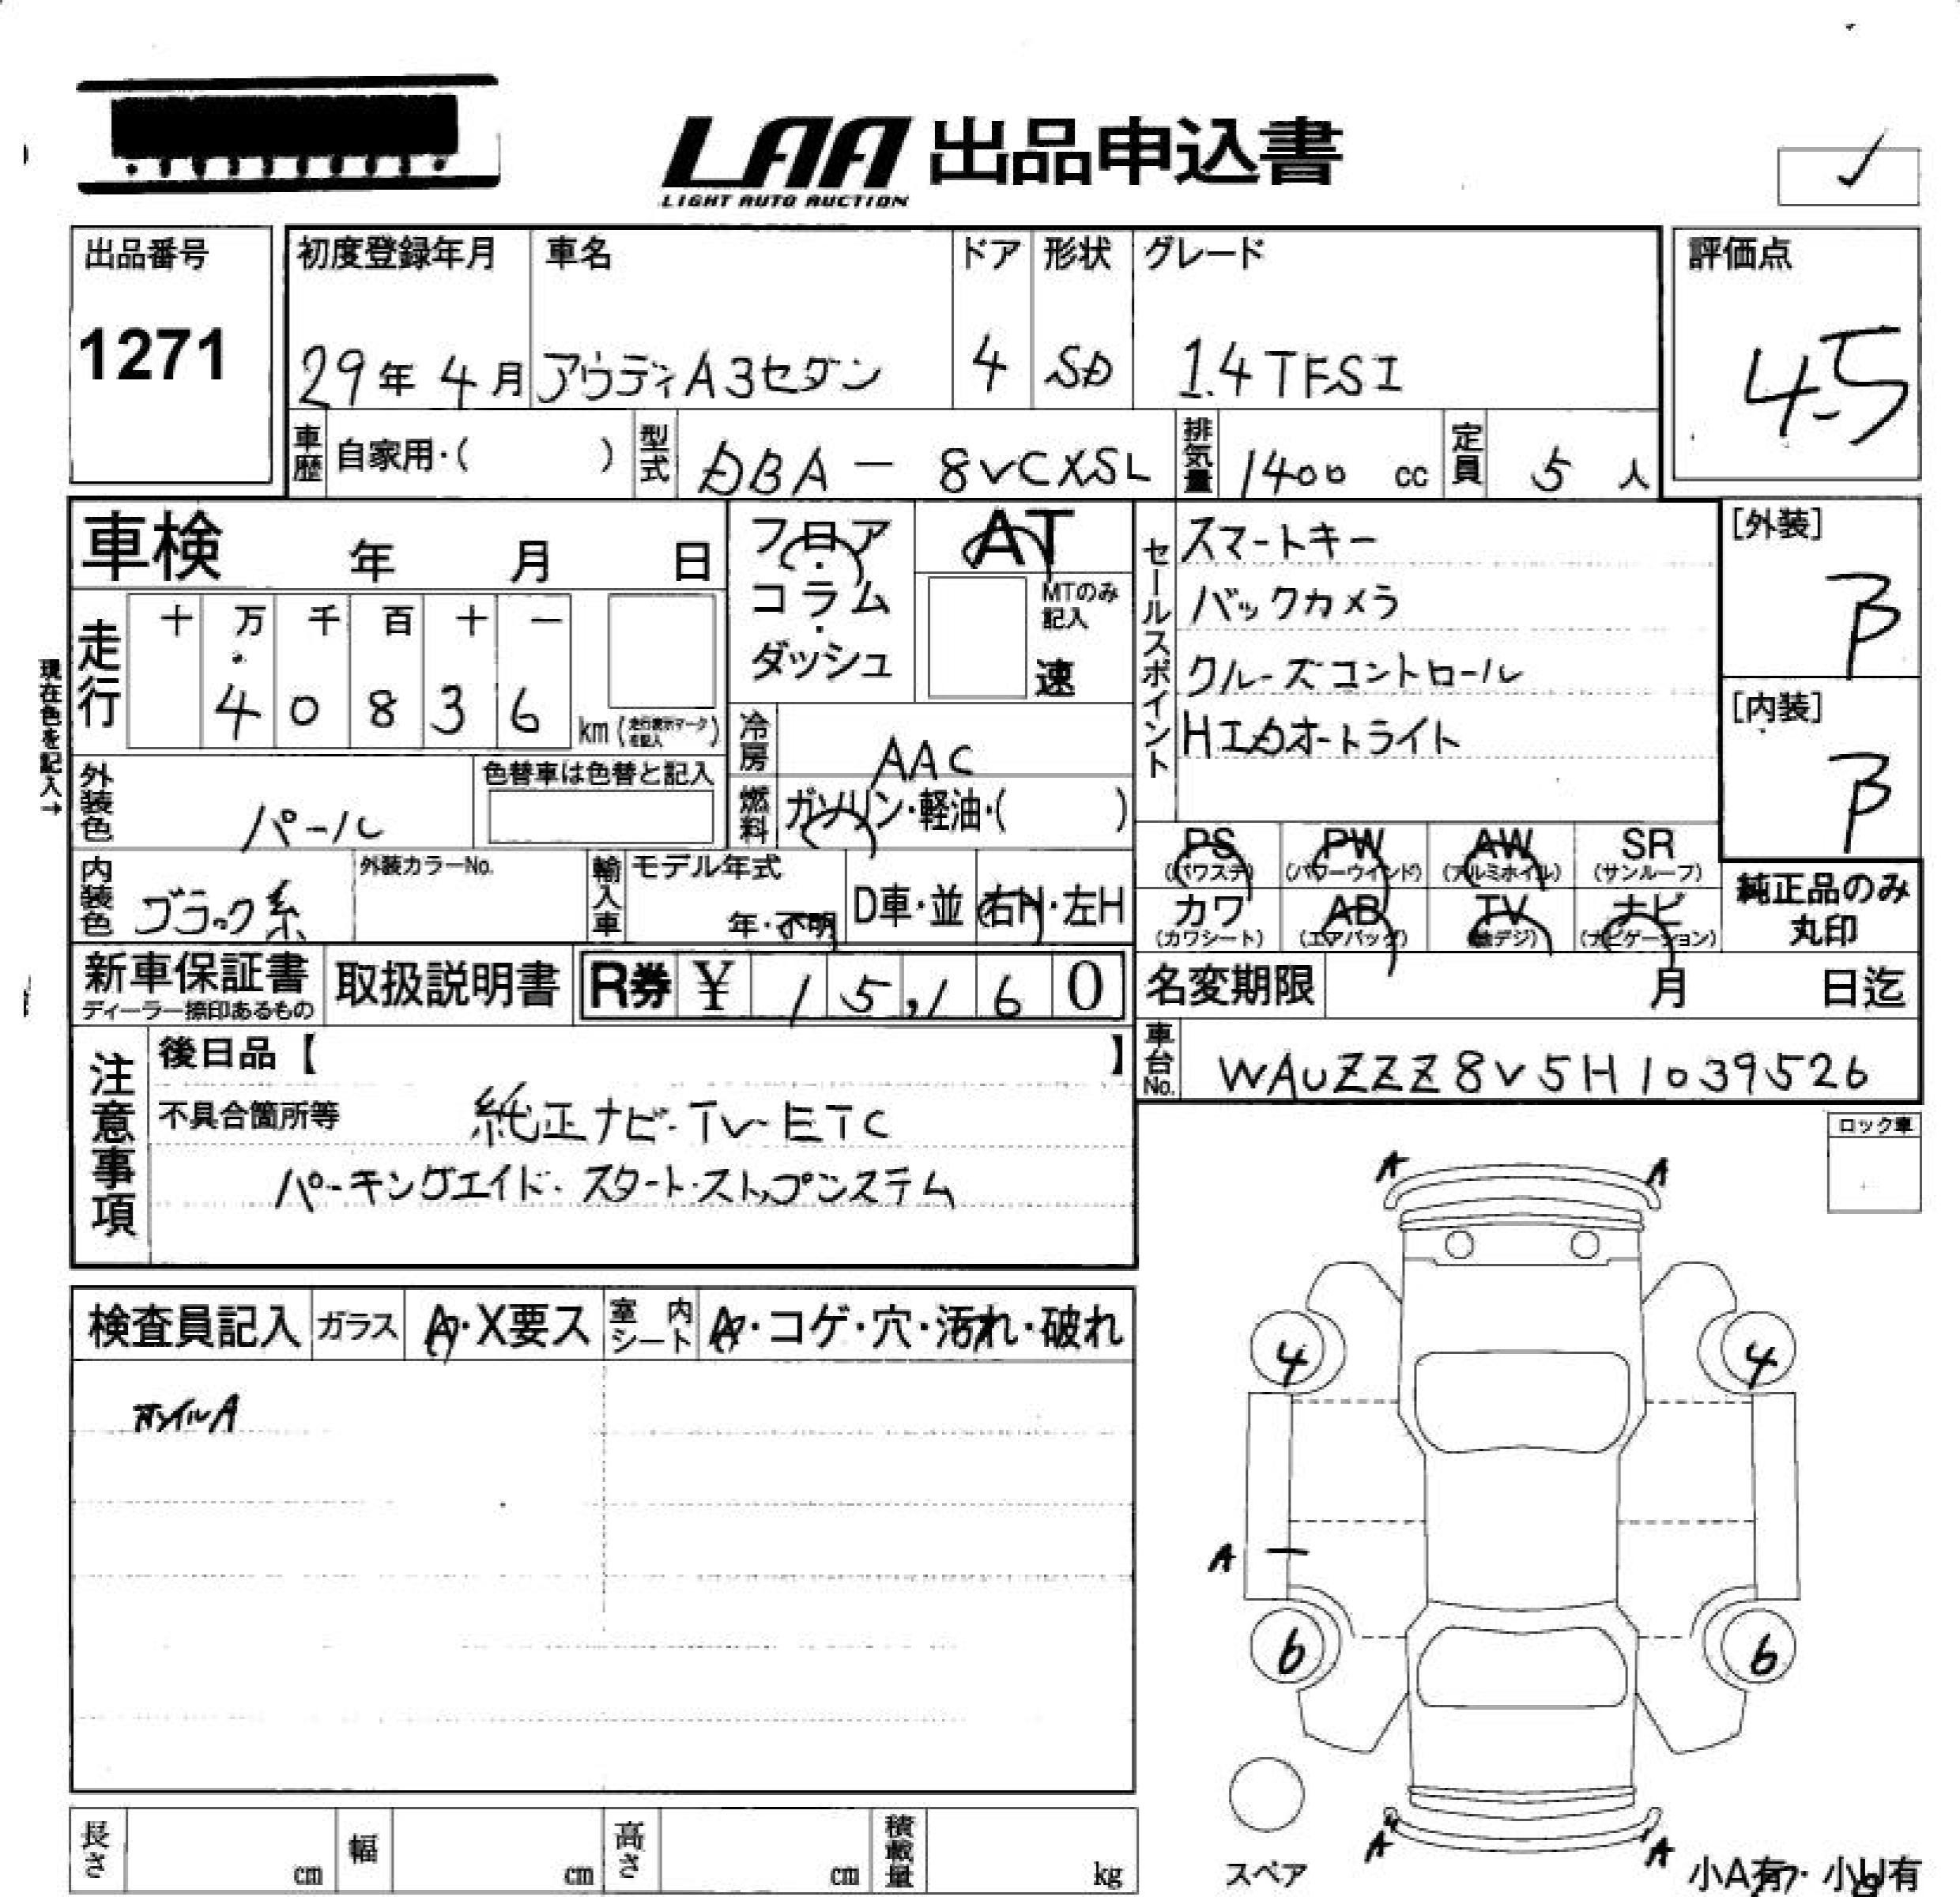 LAA 出品申込書
LIGHT AUTO AUCTION
出品番号
1271
初度登録年月 車名 ドア 形状 グレード
29年 4月 アウディA3セダン 4 SD 1.4TFSI
評価点
4.5
車歴 自家用・( ) 型式 DBA－8VCXSL 排気量 1400 cc 定員 5 人
車検 年 月 日
フロア・コラム・ダッシュ
AT
MTのみ記入
速
走行 十 万 千 百 十 一
4 0 8 3 6 km(走行表示マークを記入)
現在色を記入→
冷房 AAC
燃料 ガソリン・軽油・( )
外装色 パール
色替車は色替と記入
内装色 ブラック系
外装カラーNo.
輸入車 モデル年式
年・不明
D車・並 右H・左H
セールスポイント
スマートキー
バックカメラ
クルーズコントロール
HIDオートライト
[外装]
B
[内装]
B
PS PW AW SR
(パワステ) (パワーウインド) (アルミホイル) (サンルーフ)
カワ AB TV ナビ
(カワシート) (エアバッグ) (地デジ) (ナビゲーション)
純正品のみ
丸印
新車保証書
ディーラー捺印あるもの
取扱説明書
R券 ¥ 15,160
名変期限 月 日迄
車台No. WAUZZZ8V5H1039526
注意事項
後日品【 】
不具合箇所等 純正ナビ・TV・ETC
パーキングエイド・スタート・ストップシステム
ロック車
検査員記入 ガラス A・X要ス 室内シート A・コゲ・穴・汚れ・破れ
ホイルA
A A
4 4
A
6 6
A A
スペア
小A有・小U有
長さ cm 幅 cm 高さ cm 積載量 kg